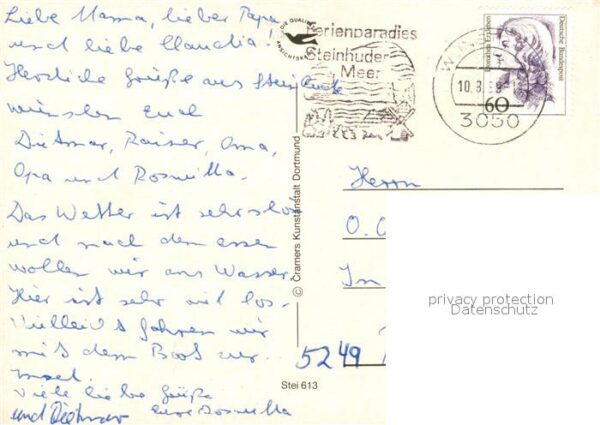 Liebe Mama, lieber Papa,
und liebe Claudia.
Herzliche Grüße aus Steinhude
wünschen Euch
Dietmar, Rainer, Oma,
Opa und Roswitha.
Das Wetter ist sehr schön
und nach dem essen
wollen wir ans Wasser.
Hier ist sehr viel los.
Vielleicht fahren wir
mit dem Boot zur
Insel.
Viele liebe Grüße
und Dietmar eure Roswitha
Ferienparadies
Steinhuder
Meer
10.8.
3050
60
Deutsche Bundespost
© Cramers Kunstanstalt Dortmund
Stei 613
Herrn
O.
In
5249
privacy protection
Datenschutz